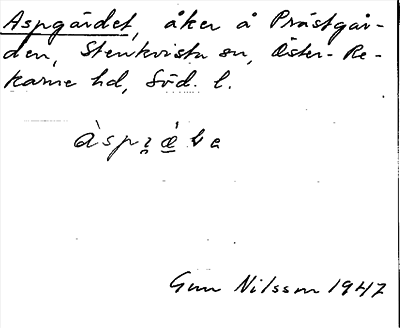 Aspgärdet, åker å Prästgår-
den, Stenkvista sn, Öster-Re-
karne hd, Söd. l.
Gun Nilsson 1947